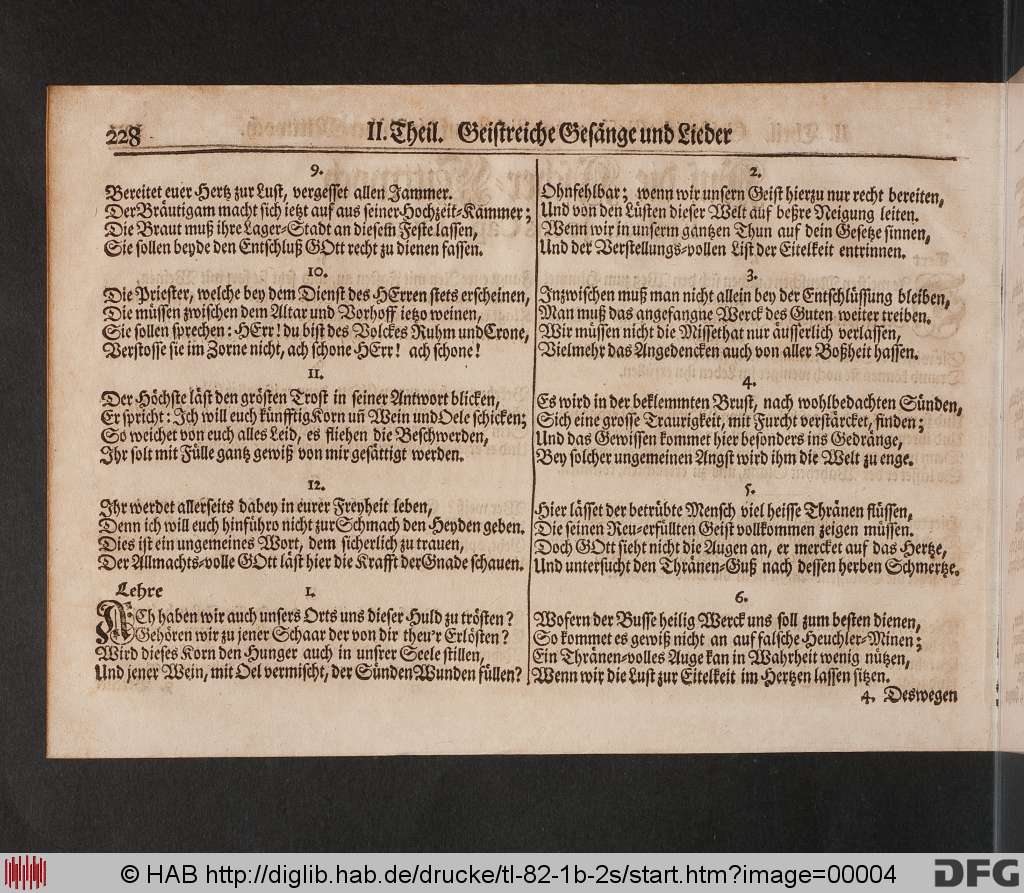 228
II. Theil. Geistreiche Gesänge und Lieder
9.
Bereitet euer Hertz zur Lust, vergesset allen Jammer.
Der Bräutigam macht sich ietzt auf aus seiner Hochzeit-Kammer;
Die Braut muß ihre Lager-Stadt an diesem Feste lassen,
Sie sollen beyde den Entschluß GOtt recht zu dienen fassen.
10.
Die Priester, welche bey dem Dienst des HErren stets erscheinen,
Die müssen zwischen dem Altar und Vorhoff ietzo weinen,
Sie sollen sprechen: HErr! du bist des Volckes Ruhm und Crone,
Verstosse sie im Zorne nicht, ach schone HErr! ach schone!
11.
Der Höchste läst den grösten Trost in seiner Antwort blicken,
Er spricht: Ich will euch künfftig Korn uñ Wein und Oele schicken;
So weichet von euch alles Leid, es fliehen die Beschwerden,
Ihr solt mit Fülle gantz gewiß von mir gesättigt werden.
12.
Ihr werdet allerseits dabey in eurer Freyheit leben,
Denn ich will euch hinführo nicht zur Schmach den Heyden geben.
Dies ist ein ungemeines Wort, dem sicherlich zu trauen,
Der Allmachts-volle GOtt läst hier die Krafft der Gnade schauen.
Lehre 1.
ACh haben wir auch unsers Orts uns dieser Huld zu trösten?
Gehören wir zu jener Schaar der von dir theu'r Erlösten?
Wird dieses Korn den Hunger auch in unsrer Seele stillen,
Und jener Wein, mit Oel vermischt, der Sünden Wunden füllen?
2.
Ohnfehlbar; wenn wir unsern Geist hierzu nur recht bereiten,
Und von den Lüsten dieser Welt auf beßre Neigung leiten.
Wenn wir in unserm gantzen Thun auf dein Gesetze sinnen,
Und der Verstellungs-vollen List der Eitelkeit entrinnen.
3.
Inzwischen muß man nicht allein bey der Entschlüssung bleiben,
Man muß das angefangne Werck des Guten weiter treiben.
Wir müssen nicht die Missethat nur äusserlich verlassen,
Vielmehr das Angedencken auch von aller Boßheit hassen.
4.
Es wird in der beklemmten Brust, nach wohlbedachten Sünden,
Sich eine grosse Traurigkeit, mit Furcht verstärcket, finden;
Und das Gewissen kommet hier besonders ins Gedränge,
Bey solcher ungemeinen Angst wird ihm die Welt zu enge.
5.
Hier lässet der betrübte Mensch viel heisse Thränen flüssen,
Die seinen Reu-erfüllten Geist vollkommen zeigen müssen.
Doch GOtt sieht nicht die Augen an, er mercket auf das Hertze,
Und untersucht den Thränen-Guß nach dessen herben Schmertze.
6.
Wofern der Busse heilig Werck uns soll zum besten dienen,
So kommet es gewiß nicht an auf falsche Heuchler-Minen;
Ein Thränen-volles Auge kan in Wahrheit wenig nützen,
Wenn wir die Lust zur Eitelkeit im Hertzen lassen sitzen.
4. Deswegen
© HAB http://diglib.hab.de/drucke/tl-82-1b-2s/start.htm?image=00004
DFG